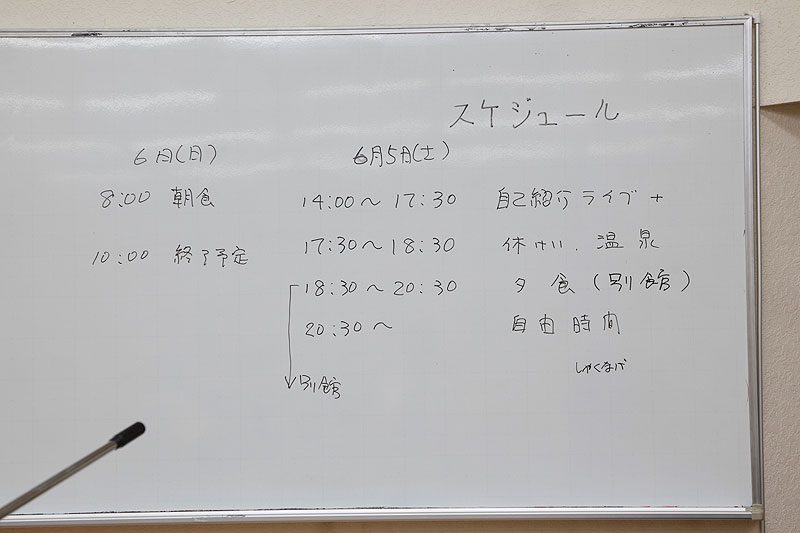 スケジュール
6月5日(土)
14:00～17:30 自己紹介ライブ+
17:30～18:30 休けい、温泉
18:30～20:30 夕食(別館)
20:30～ 自由時間
しゃくなげ
別館
6日(日)
8:00 朝食
10:00 終了予定